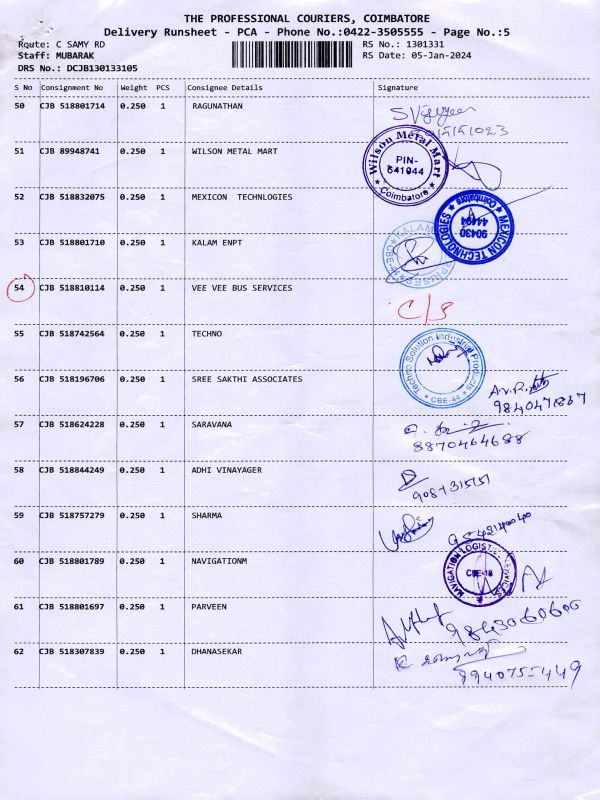 THE PROFESSIONAL COURIERS, COIMBATORE
Delivery Runsheet - PCA - Phone No.:0422-3505555 - Page No.:5
Route: C SAMY RD RS No.: 1301331
Staff: MUBARAK RS Date: 05-Jan-2024
DRS No.: DCJB130133105
S No Consignment No Weight PCS Consignee Details Signature
50 CJB 518801714 0.250 1 RAGUNATHAN
51 CJB 89948741 0.250 1 WILSON METAL MART
Wilson Metal Mart
PIN-
641044
Coimbatore
52 CJB 518832075 0.250 1 MEXICON TECHNLOGIES
MEXICON TECHNOLOGIES
Coimbatore
90430
44494
53 CJB 518801710 0.250 1 KALAM ENPT
54 CJB 518810114 0.250 1 VEE VEE BUS SERVICES
C/S
55 CJB 518742564 0.250 1 TECHNO
Techno Solution Industrial Products
CBE-44
56 CJB 518196706 0.250 1 SREE SAKTHI ASSOCIATES
57 CJB 518624228 0.250 1 SARAVANA
8870464688
58 CJB 518844249 0.250 1 ADHI VINAYAGER
59 CJB 518757279 0.250 1 SHARMA
60 CJB 518801789 0.250 1 NAVIGATIONM
CBE-18
61 CJB 518801697 0.250 1 PARVEEN
9843060606
62 CJB 518307839 0.250 1 DHANASEKAR
9940755449